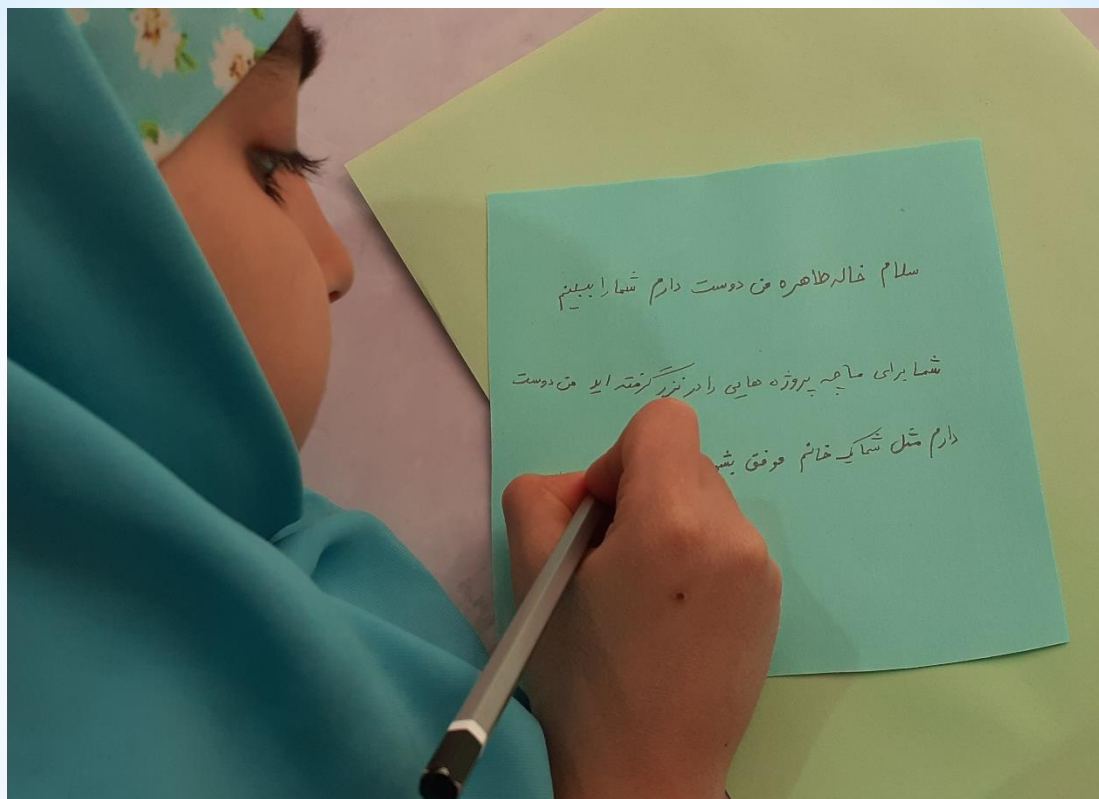 سلام خاله طاهره من دوست دارم شما را ببینم
شما برای ما چه پروژه هایی را در نزر گرفته اید من دوست
دارم مثل شما یک خانم موفق بشو